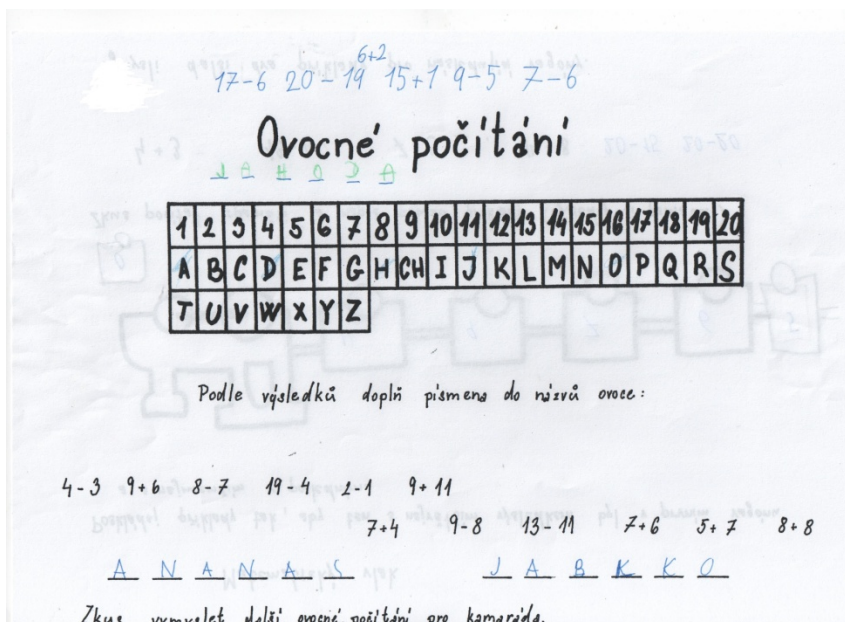 6+2
17-6 20-19 15+1 9-5 7-6
Ovocné počítání
J A H O D A
1 2 3 4 5 6 7 8 9 10 11 12 13 14 15 16 17 18 19 20
A B C D E F G H CH I J K L M N O P Q R S
T U V W X Y Z
Podle výsledků doplň písmena do názvů ovoce:
4-3 9+6 8-7 19-4 2-1 9+11
7+4 9-8 13-11 7+6 5+7 8+8
A N A N A S J A B K K O
Zkus vymyslet další ovocné počítání pro kamaráda.